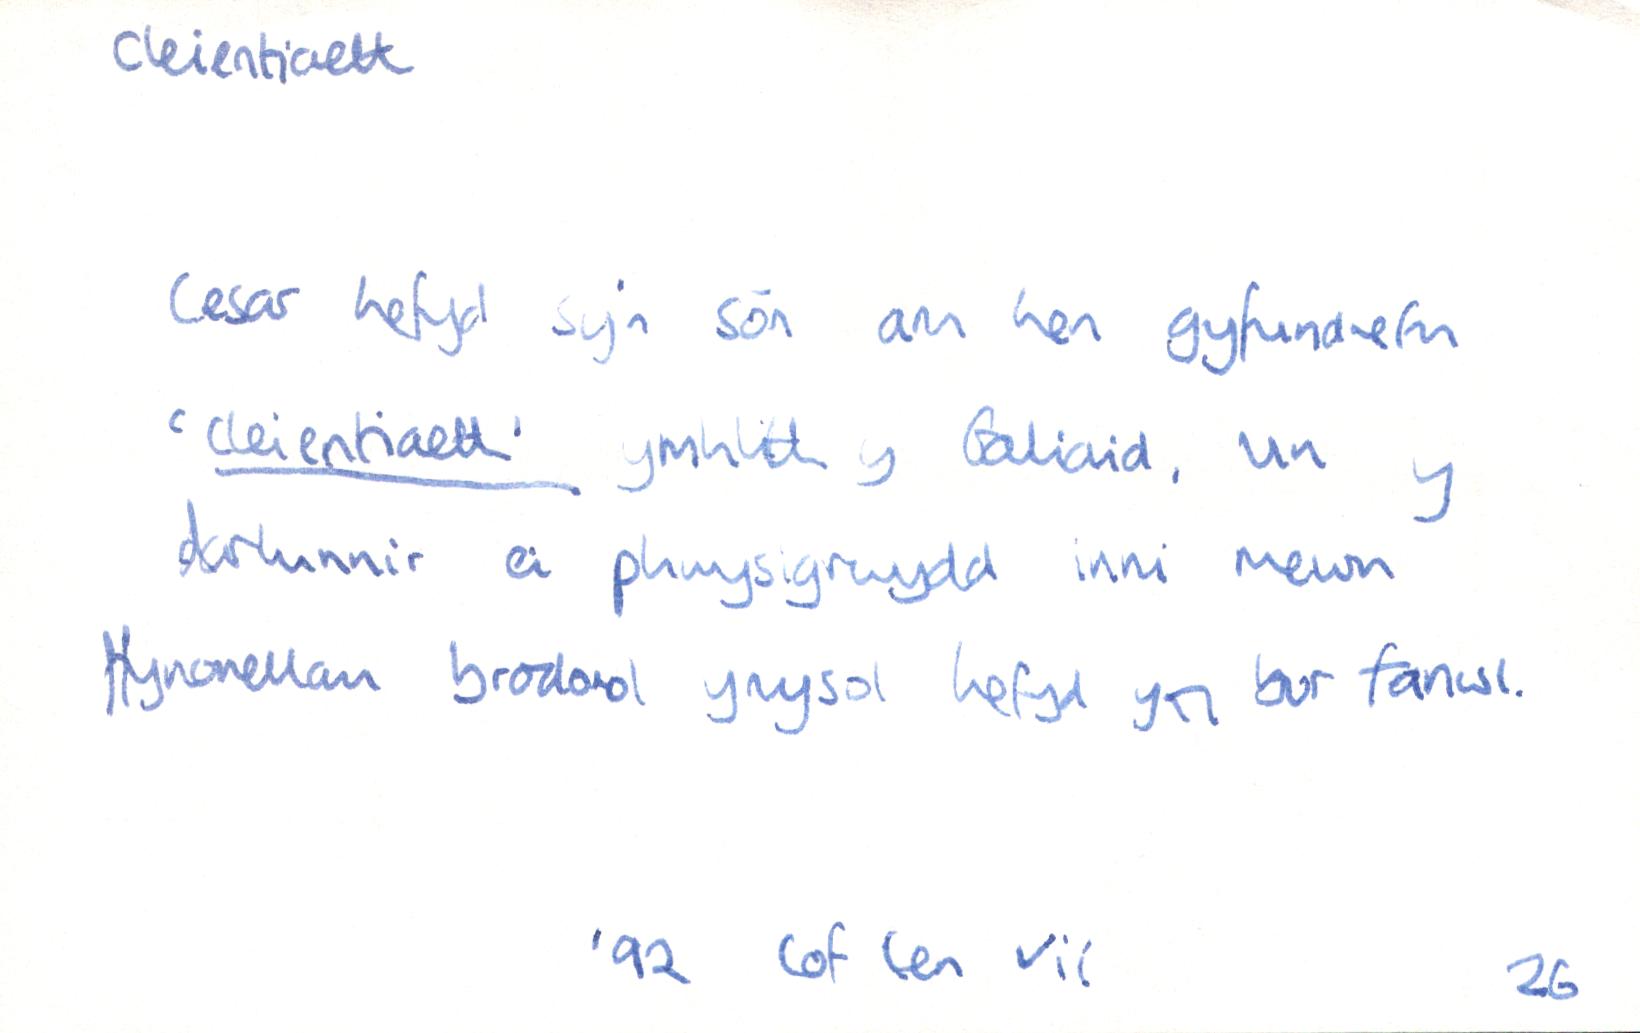 Cleientiaeth
Cesar hefyd sy'n sôn am hen gyfundrefn
'cleientiaeth' ymhlith y Galiaid, un y
darlunnir ei phwysigrwydd inni mewn
ffynonellau brodorol ynysol hefyd yn bur fanwl.
'92 Cof Cen vii 26